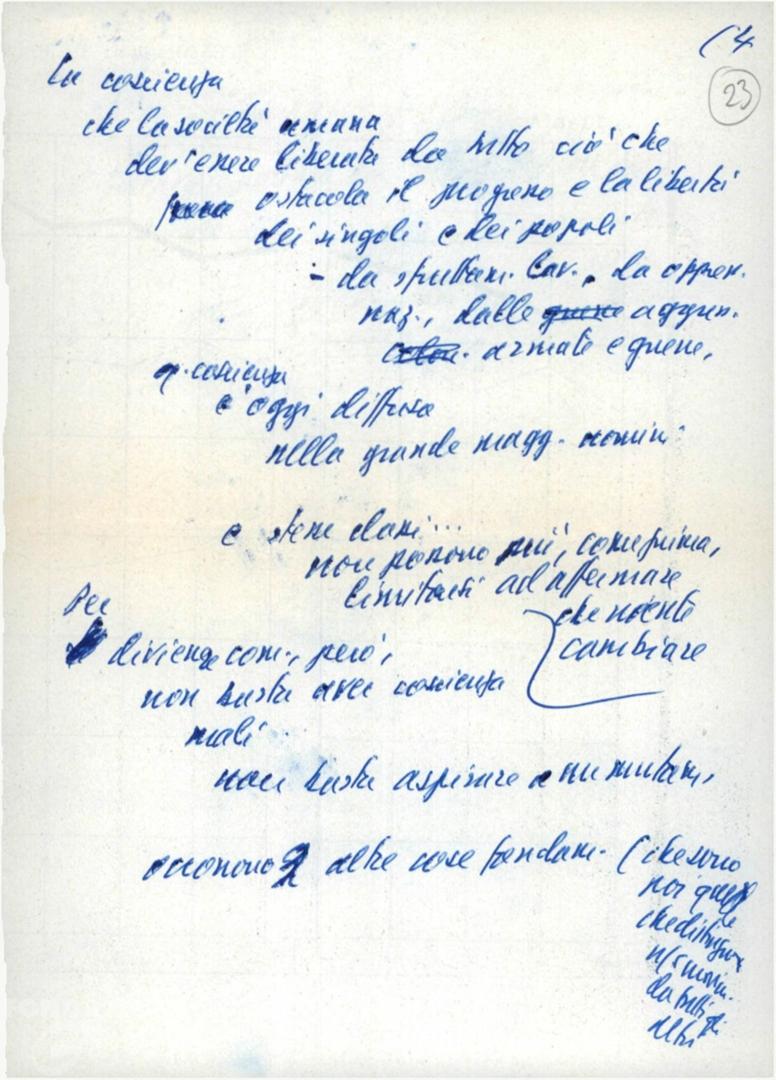 (4
23
La coscienza
che la società umana
dev'essere liberata da tutto ciò che
ostacola il progresso e la libertà
dei singoli e dei popoli
- da sfruttam. lav., da oppress.
naz., dalle guerre aggress.
armate e guerre,
q. coscienza
è oggi diffusa
nella grande magg. uomini
e stessi dani...
non possono più, come prima,
limitarsi ad affermare
che niente
cambiare
Per
divenire com., però,
non basta aver coscienza
mali
non basta aspirare a un mutam.,
occorrono 2 altre cose fondam. (che sono
poi quelle
che distinguono
n/s movim.
da tutti gli
altri